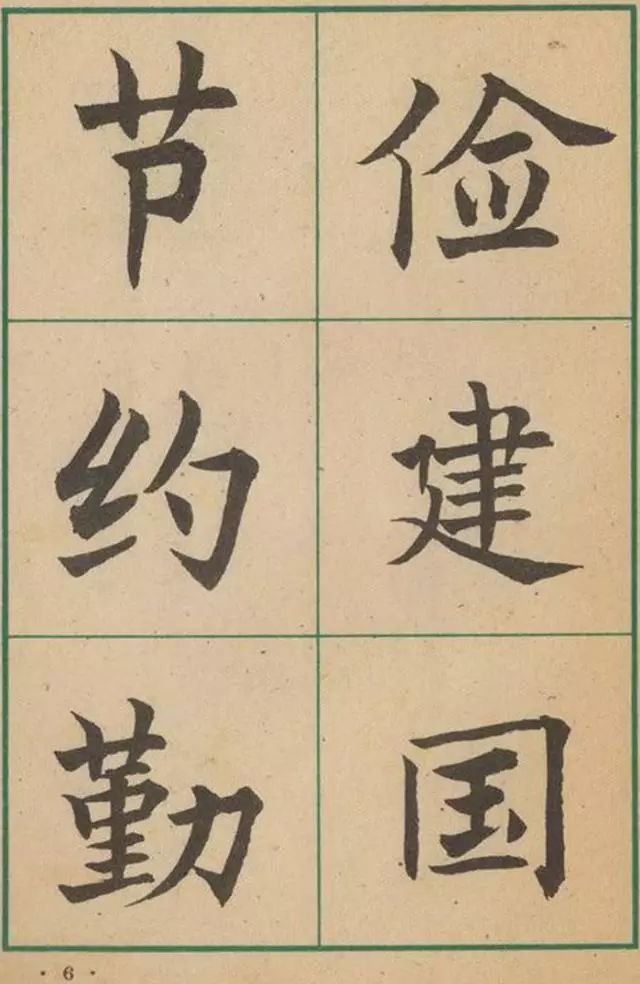 俭建国
节约勤
· 6 ·